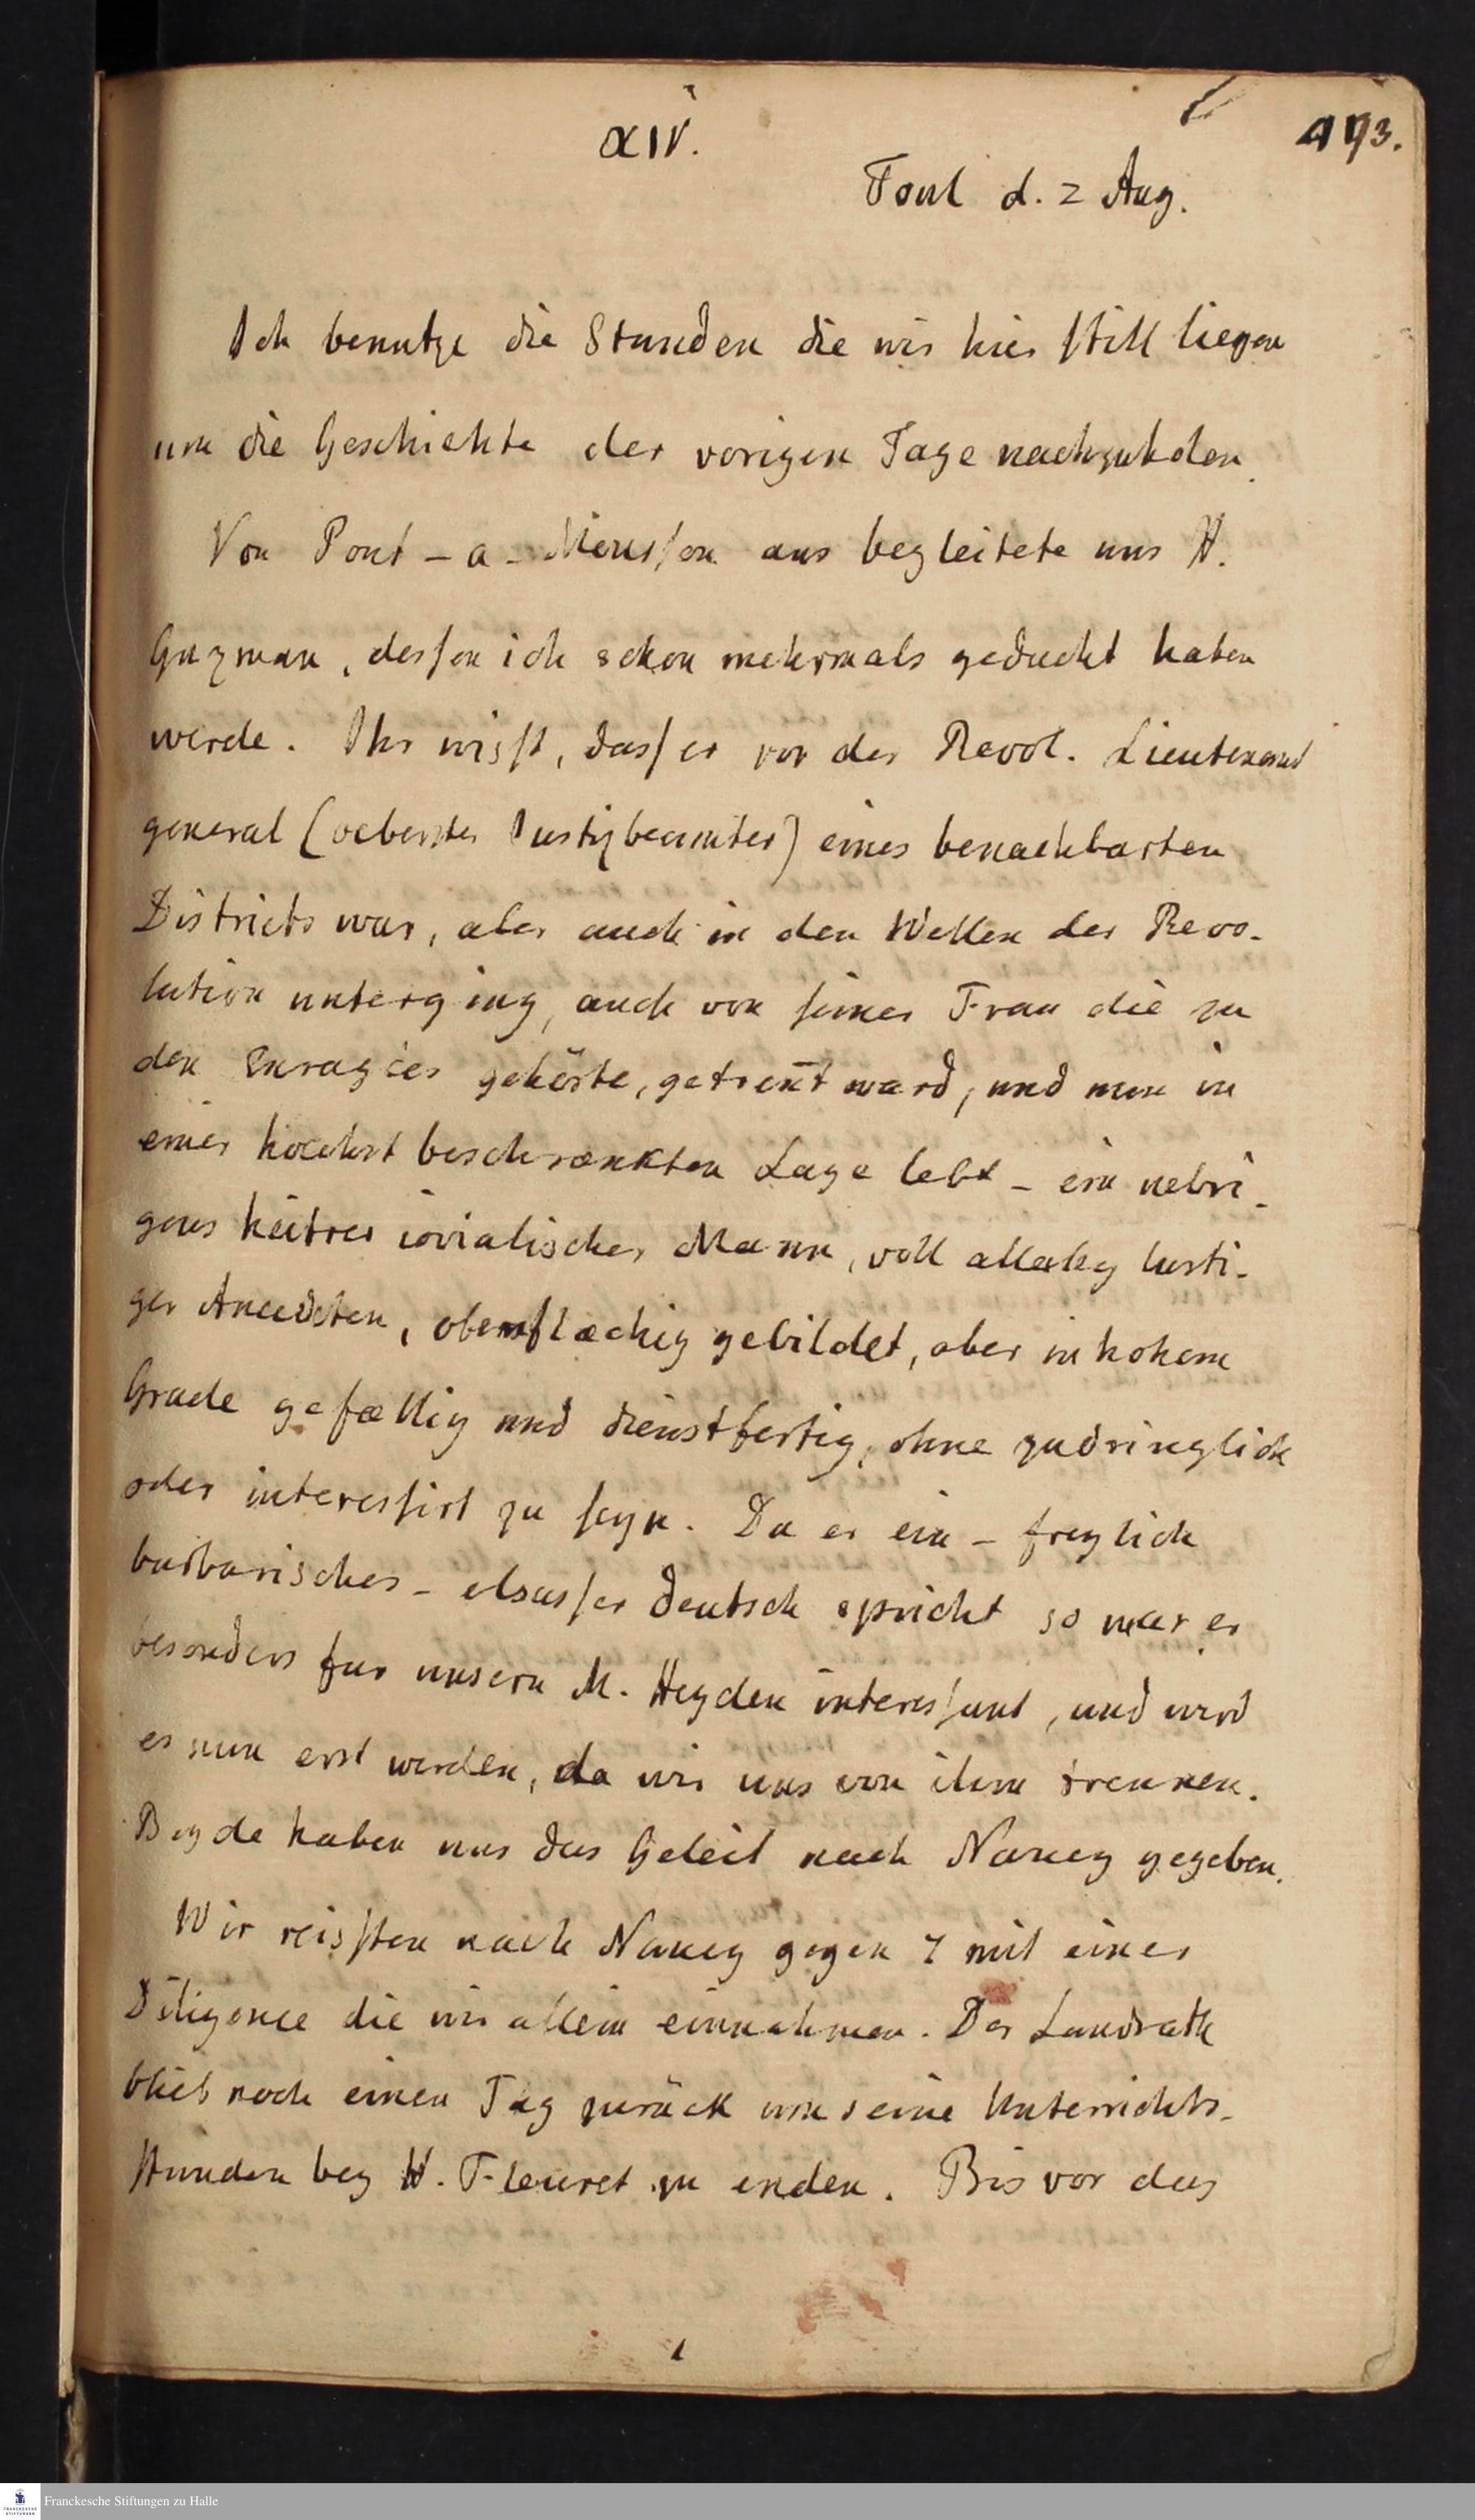 XIV.
173.
Toul d. 2 Aug.
Ich benutze die Stunden die wir hier still liegen
um die Geschichte der vorigen Tage nachzuholen.
Von Pont-a-Mousson aus begleitete uns H.
Guzman, dessen ich schon mehrmals gedacht haben
werde. Ihr wisst, dass er vor der Revol. Lieutenant
general (oeberster Justizbeamter) eines benachbarten
Districts war, aber auch in den Wellen der Revo-
lution unterging, auch von seiner Frau die zu
den Enragées gehörte, getreñt ward, und nun in
einer hoechst beschraenkten Lage lebt - ein uebri-
gens heitrer iovialischer Mann, voll allerley lusti-
ger Anecdoten, oberflaechig gebildet, aber in hohem
Grade gefaellig und dienstfertig, ohne zudringlich
oder interessirt zu seyn. Da er ein - freylich
barbarisches - elsasser deutsch spricht so war er
besonders fur unsern M. Heyden interessant, und wird
es nun erst werden, da wir uns von ihm trennen.
Beyde haben uns das Geleit nach Nancy gegeben.
Wir reissten nach Nancy gegen 7 mit einer
Diligence die wir allein einnahmen. Der Landrath
blieb noch einen Tag zurück um seine Unterrichts-
stunden bey H. Fleuret zu enden. Bis vor das
Franckesche Stiftungen zu Halle